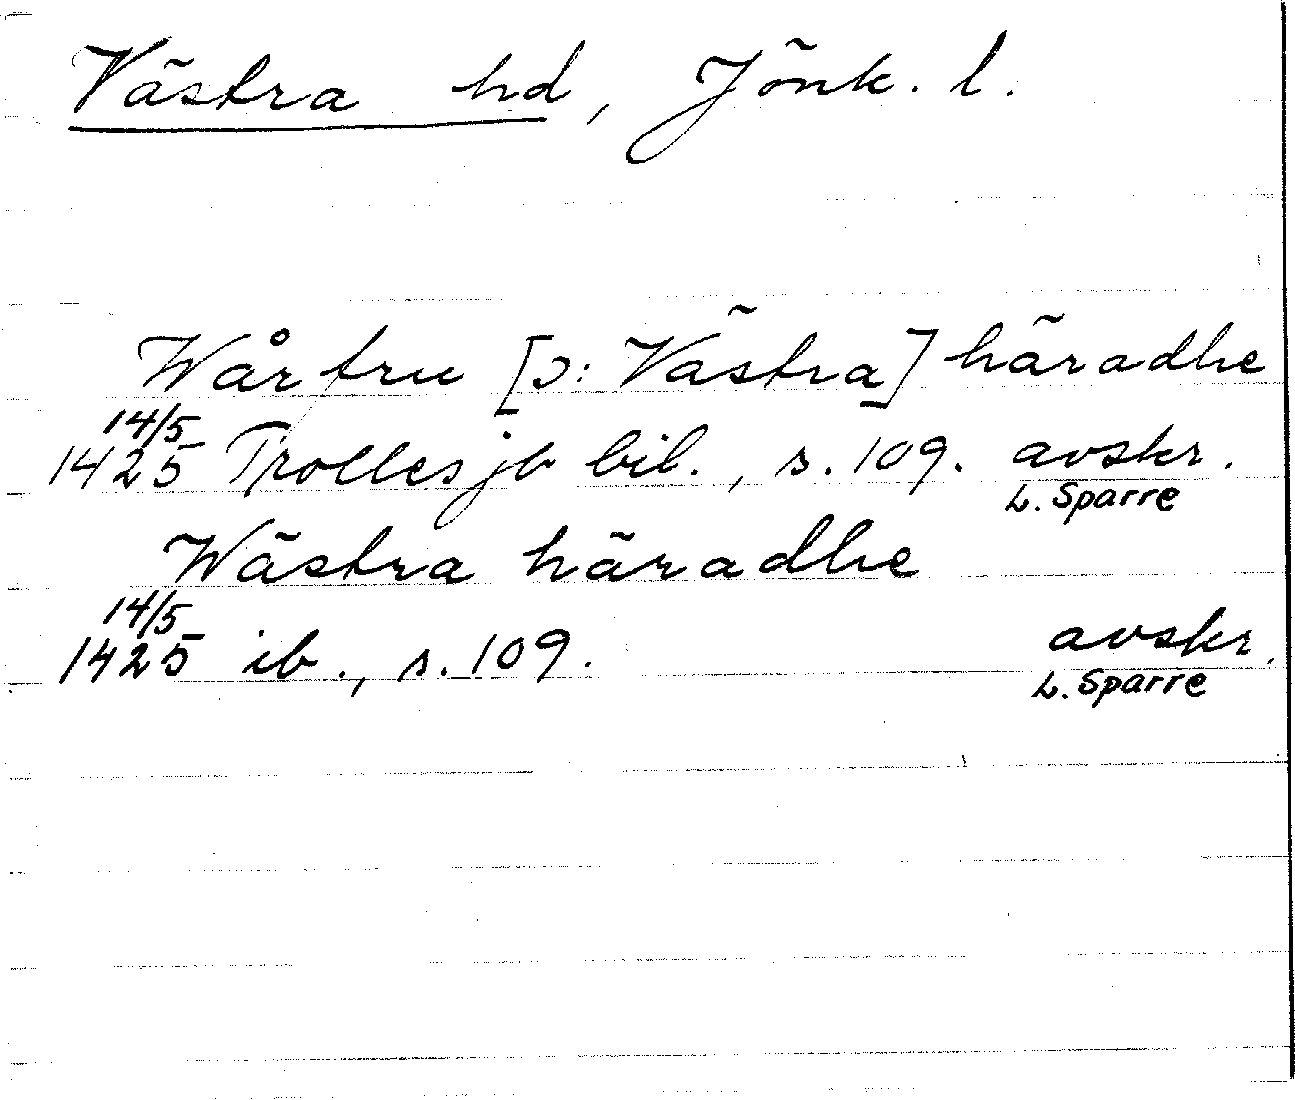 Västra hd, Jönk. l.
Wårtru [ɔ: Västra] häradhe
14/5
1425 Trollesjb bil., s. 109. avskr.
L. Sparre
Wästra häradhe
14/5
1425 ib., s. 109. avskr.
L. Sparre